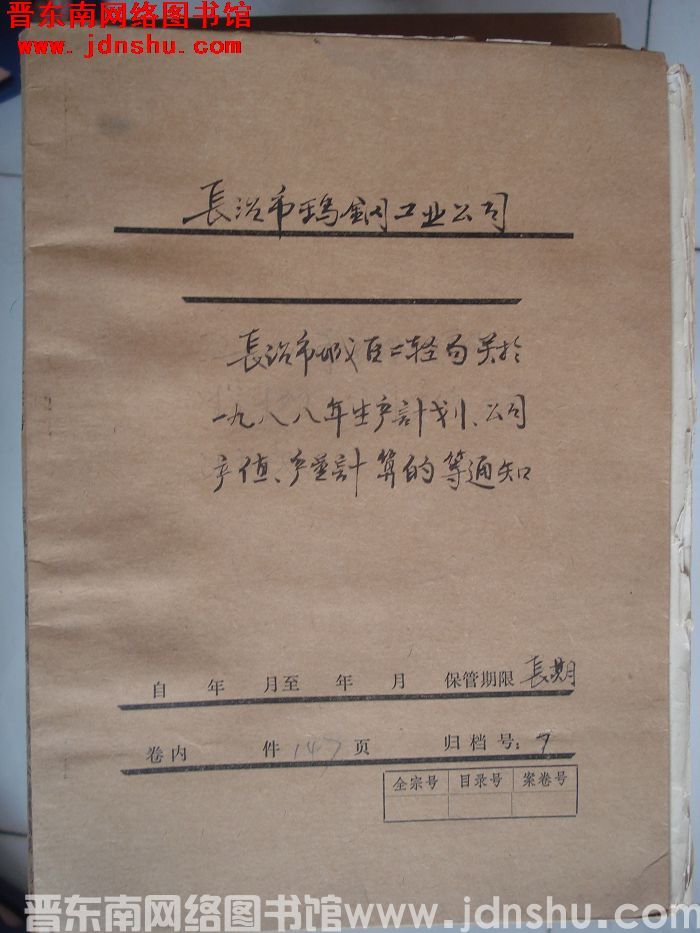 晋东南网络图书馆
www.jdnshu.com
長治市玛钢工业公司
長治市城区二轻局关於
一九八八年生产計划、公司
产值、产量計算的等通知
自 年 月至 年 月 保管期限 長期
卷内 件 147 页 归档号: 7
全宗号 目录号 案卷号
晋东南网络图书馆 www.jdnshu.com